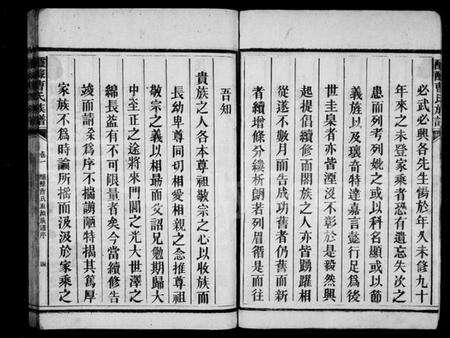 必武必興各先生惕於年久未修九十
年來之未登家乘者恐有遺忘失次之
患而列考列妣之或以科名顯或以節
義旌以及瓌奇特達嘉言懿行足為後
世圭臬者亦皆湮沒不彰於是毅然興
起提倡續修而闔族之人亦皆踴躍相
從遂不數月而告成功舊者仍舊而新
者續增條分縷析朗若列眉循是而往
吾知
貴族之人各本尊祖敬宗之心以收族而
長幼卑尊同切相愛相親之念推尊祖
敬宗之義以相勗而父詔兄勉期歸大
中至正之途將來門閭之光大世澤之
綿長益有不可限量者矣今當續修告
竣而請
為序不揣譾陋特揭其篤厚
家族不為時論所搖而汲汲於家乘之
醴陵曹氏族譜
卷一
四